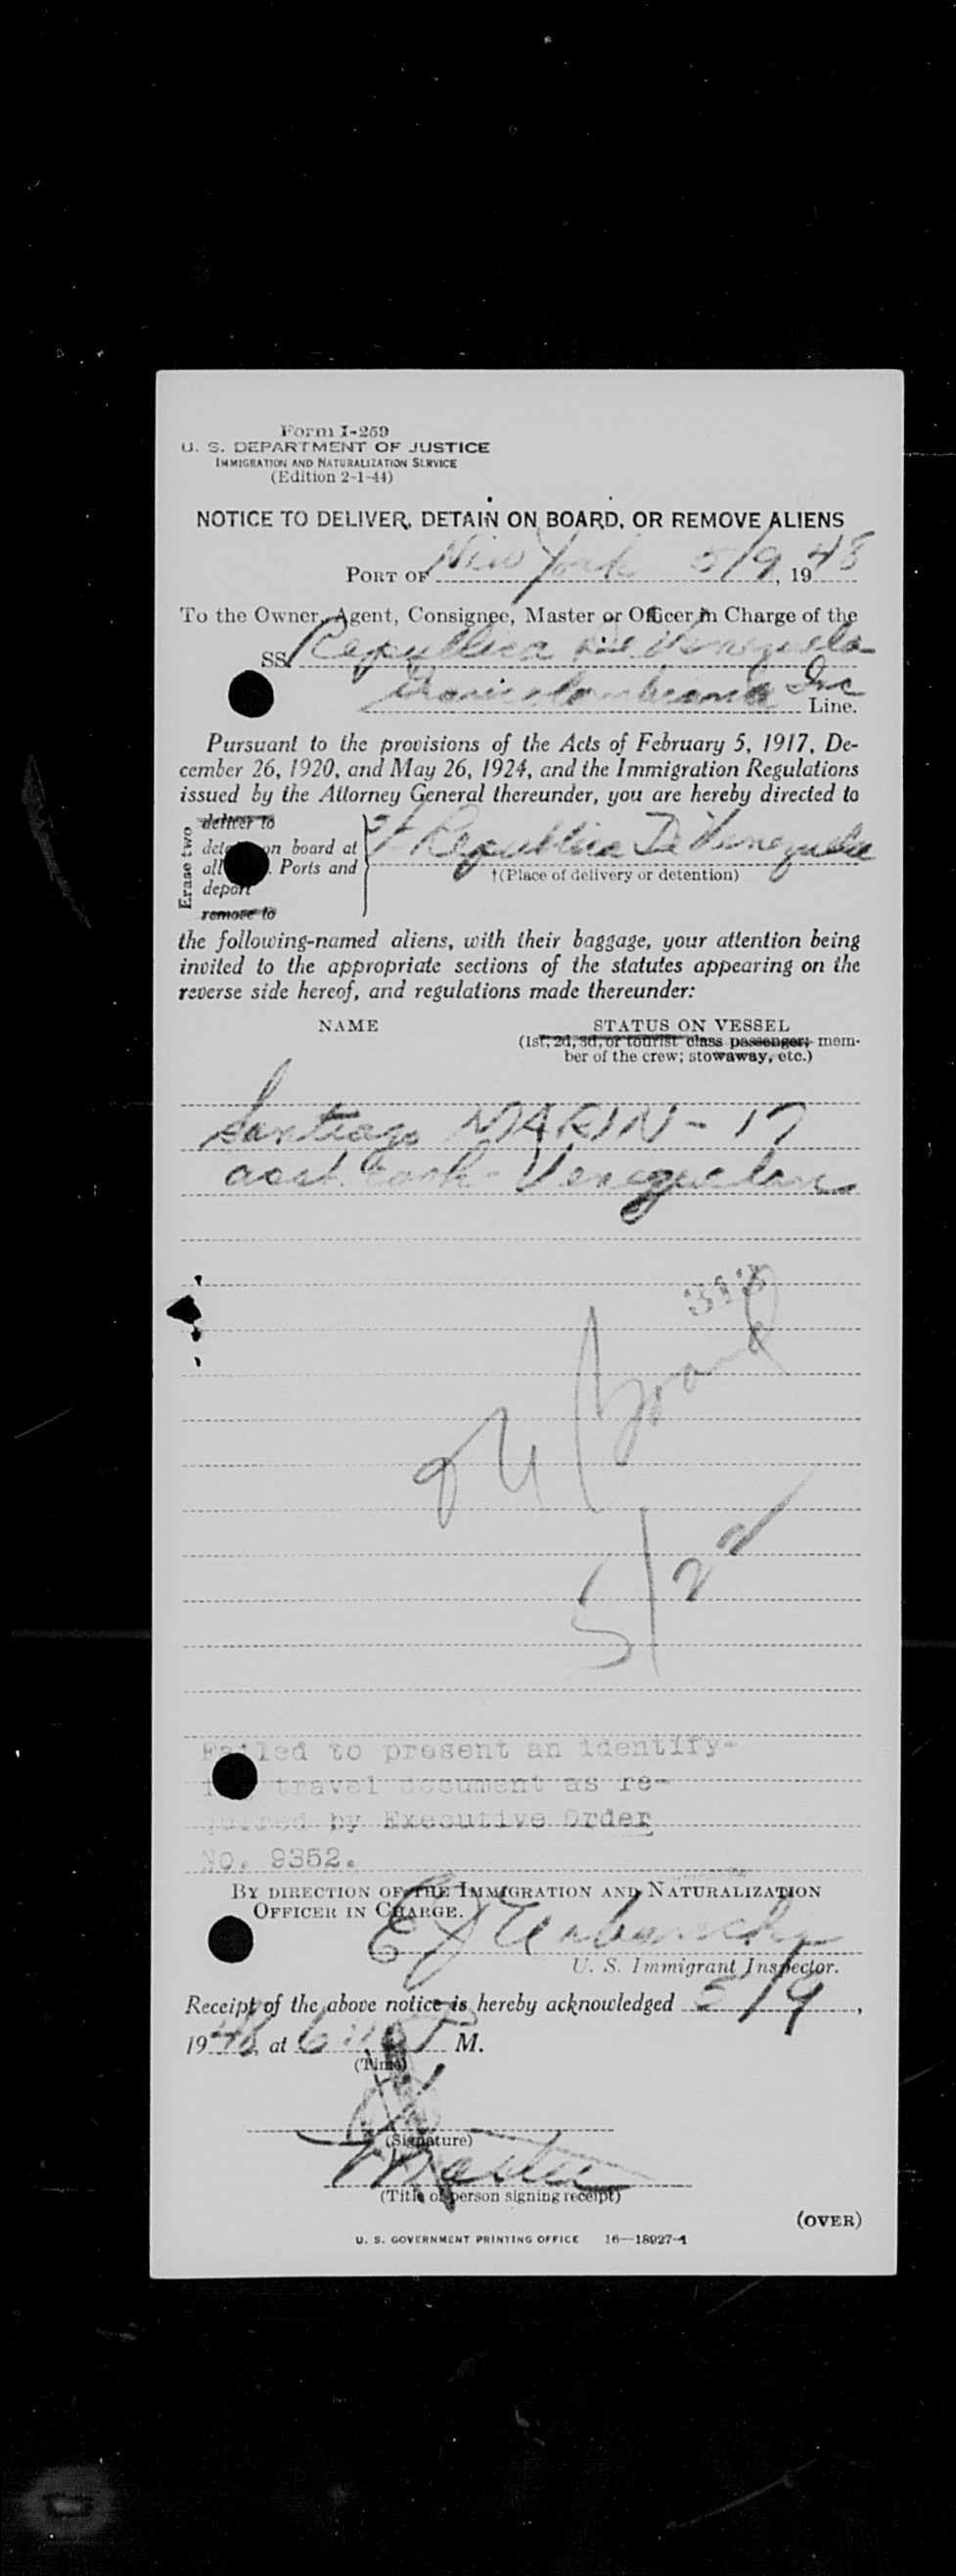 Form I-259
U. S. DEPARTMENT OF JUSTICE
IMMIGRATION AND NATURALIZATION SERVICE
(Edition 2-1-44)
NOTICE TO DELIVER, DETAIN ON BOARD, OR REMOVE ALIENS
PORT OF New York 5/9, 1948
To the Owner, Agent, Consignee, Master or Officer in Charge of the
SS Republica De Venezuela
Inc Line.
Pursuant to the provisions of the Acts of February 5, 1917, De-
cember 26, 1920, and May 26, 1924, and the Immigration Regulations
issued by the Attorney General thereunder, you are hereby directed to
Erase two
deliver to
on board at
all Ports and
deport
remove to
Republica De Venezuela
†(Place of delivery or detention)
the following-named aliens, with their baggage, your attention being
invited to the appropriate sections of the statutes appearing on the
reverse side hereof, and regulations made thereunder:
NAME STATUS ON VESSEL
(1st, 2d, 3d, or tourist class passenger; mem-
ber of the crew; stowaway, etc.)
Santiago MARIN - 17
asst. Cook - Venezuelan
Board
5/22
Failed to present an identify-
travel document as re-
quired by Executive Order
No. 9352.
BY DIRECTION OF THE IMMIGRATION AND NATURALIZATION
OFFICER IN CHARGE.
U. S. Immigrant Inspector.
Receipt of the above notice is hereby acknowledged 5/9,
1948, at P M.
(Time)
(Signature)
Master
(Title of person signing receipt)
(OVER)
U. S. GOVERNMENT PRINTING OFFICE 16—18927-1